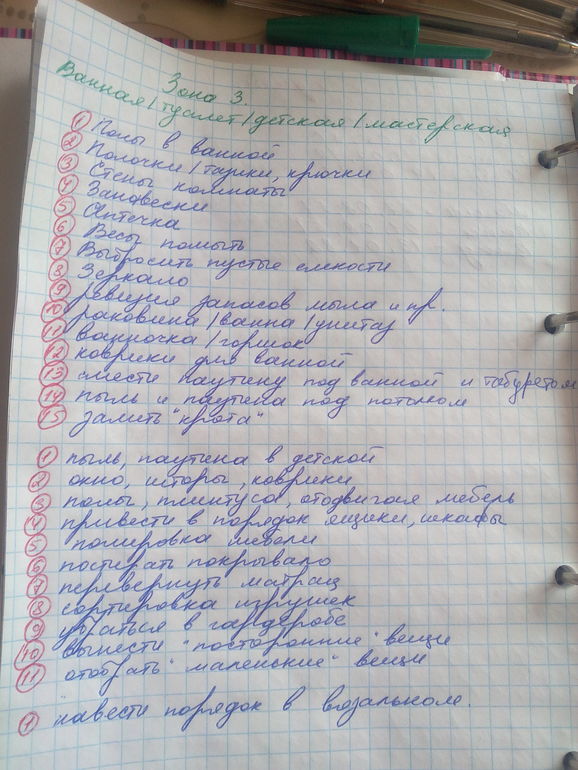 Зона 3.
Ванная / туалет / детская / мастерская
1 Полы в ванной
2 Полочки / тазики, крючки
3 Стены комнаты
4 Занавески
5 Аптечка
6 Весы помыть
7 Выбросить пустые емкости
8 Зеркало
9 ревизия запасов мыла и пр.
10 раковина / ванна / унитаз
11 ванночка / горшок
12 коврики для ванной
13 смести паутину под ванной и табуретом
14 пыль и паутина под потолком
15 залить "крота"
1 пыль, паутина в детской
2 окно, шторы, коврики
3 полы, плинтуса, отодвигая мебель
4 привести в порядок ящики, шкафы
5 полировка мебели
6 постирать покрывало
7 перевернуть матрац
8 сортировка игрушек
9 убраться в гардеробе
10 вынести "посторонние" вещи
11 отобрать "маленькие" вещи
1 навести порядок в вязальном.